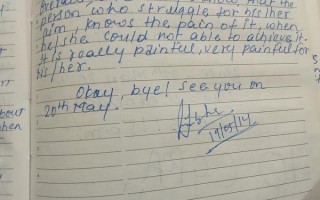 that the
person who struggle for his/her
aim, knows the pain of it, when
he/she could not able to achieve it.
It's really painful, very painful for
his/her.
Okay, bye! see you on
20th May.
19/05/14
bout
hen